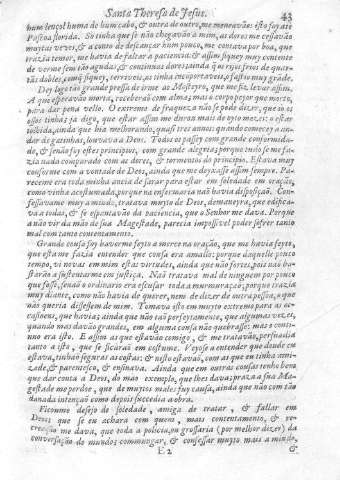 Santa Theresa de Jesus. 43
hum lençol huma de hum cabo, & outra de outro, me meneavão: isto foy atè
Pascoa florida. Só tinha que se não chegavão a mim, as dores me cessavão
muytas vezes, & a conto de descançar hum pouco, me contava por boa, que
trazia temor, me havia de faltar a paciencia: & assim fiquey muy contente
de verme sem tão agudas, & continuas dores, ainda que rijos frios de quar-
tãs dobles, com q̃ fiquey, fortes, os tinha incomportaveis, o fastio muy grande.
Dey logo tão grande pressa de irme ao Mosteyro, que me fiz levar assim.
A que esperavão morta, receberão com alma; mas o corpo peyor que morto,
para dar pena velle. O extremo de fraqueza não se pode dizer, que só os
ossos tinha: ja digo, que estar assim me durou mais de oyto mezes: o estar
tolhida, ainda que hia melhorando, quasi tres annos: quando comecey a an-
dar de gatinhas, louvava a Deos. Todos os passey com grande conformida-
de, & senão foy estes principios, com grande alegria; porque tudo se me fa-
zia nada comparado com as dores, & tormentos do principio. Estava muy
conforme com a vontade de Deos, ainda que me deyxasse assim sempre. Pa-
receme era toda minha ancia de sarar para estar em soledade em oração,
como vinha acostumada, porque na enfermaria não havia disposição. Con-
fessavame muy a miudo, tratava muyto de Deos, demaneyra, que edifica-
va a todas, & se espantavão da paciencia, que o Senhor me dava. Porque
a não vir da mão de sua Magestade, parecia impossivel poder sofrer tanto
mal com tanto contentamento.
Grande cousa foy haverme feyto a merce na oração, que me havia feyto,
que esta me fazia entender que cousa era amallo: porque daquelle pouco
tempo, vi novas em mim estas virtudes, ainda que não fortes, pois não ba-
starão a sustentarme em justiça. Não tratava mal de ninguem por pouco
que fosse, senão o ordinario era escusar toda a murmuração; porque trazia
muy diante, como não havia de querer, nem de dizer de outra pessoa, o que
não queria dissessem de mim. Tomava isto em muyto extremo para as oc-
casioens, que havia; ainda que não tão perfeytamente, que algumas vezes,
quando mas davão grandes, em alguma cousa não quebrasse: mas o conti-
nuo era isto. E assim as que estavão comigo, & me tratavão, persuadia
tanto a isto, que se ficarão em costume. Veyose a entender que donde eu
estava, tinhão seguras as costas: & nisto estavão, com as que eu tinha ami-
zade, & parentesco, & ensinava. Ainda que em outras cousas tenho bem
que dar conta a Deos, do mao exemplo, que lhes dava: praza a sua Ma-
gestade me perdoe, que de muytos males fuy causa, ainda que não com tão
danada intenção como depois succedia a obra.
Ficoume desejo de soledade, amiga de tratar, & fallar em
Deos: que se eu achara com quem, mais contentamento, & re-
creação me dava, que toda a policia, ou grossaria (por melhor dizer) da
conversação do mundo: commungar, & confessar muyto mais a miudo,
E 2 &